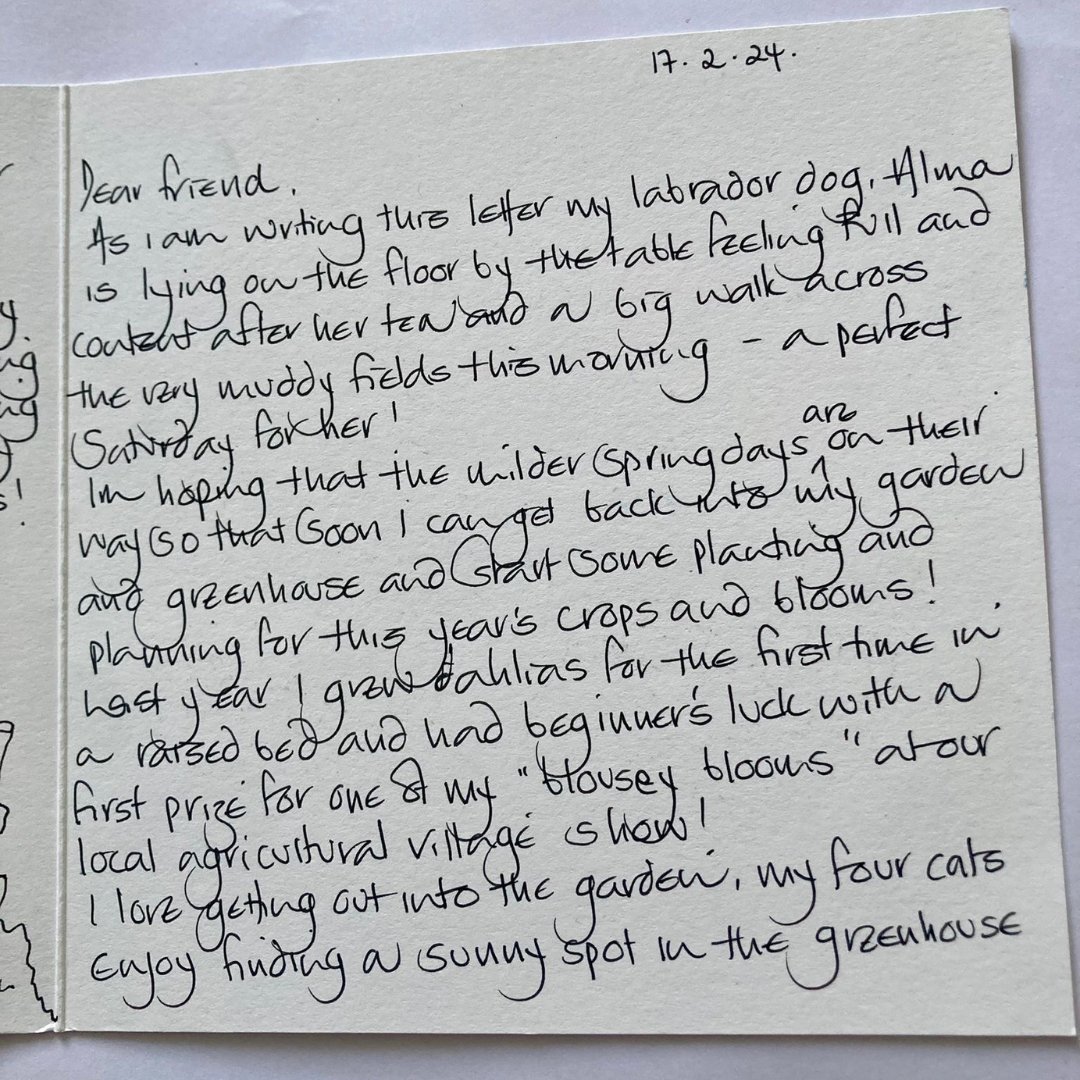 17. 2. 24.
Dear friend,
As I am writing this letter my labrador dog, Alma
is lying on the floor by the table feeling full and
content after her tea and a big walk across
the very muddy fields this morning - a perfect
Saturday for her!
Im hoping that the milder spring days are on their
way so that soon I can get back into my garden
and greenhouse and start some planting and
planning for this year's crops and blooms!
Last year I grew dahlias for the first time in
a raised bed and had beginner's luck with a
first prize for one of my "blousey blooms" at our
local agricultural village show!
I love getting out into the garden, my four cats
enjoy finding a sunny spot in the greenhouse